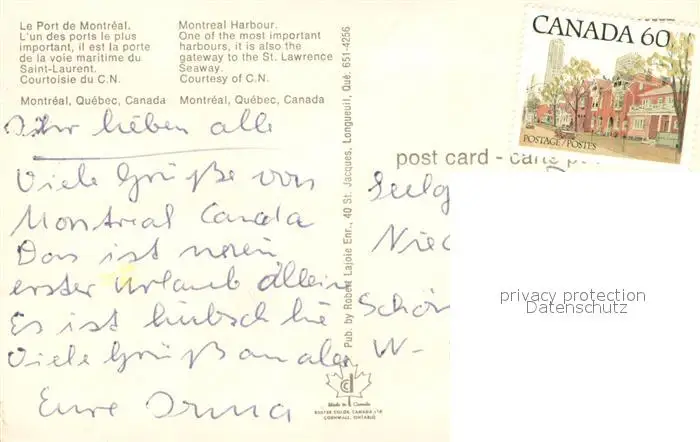 Le Port de Montréal.
L'un des ports le plus
important, il est la porte
de la voie maritime du
Saint-Laurent.
Courtoisie du C.N.
Montréal, Québec, Canada
Montreal Harbour.
One of the most important
harbours, it is also the
gateway to the St. Lawrence
Seaway.
Courtesy of C.N.
Montréal, Québec, Canada
Ihr lieben alle
Viele Grüße von
Montreal Canada
Das ist mein
erster Urlaub allein
Es ist hübsch hie
Viele Grüß an alle
Eure Irma
Pub. by Robert Lajoie Enr., 40 St. Jacques, Longueuil, Qué. 651-4256
Made in Canada
DEXTER COLOR CANADA LTD
CORNWALL, ONTARIO
CANADA 60
POSTAGE/POSTES
post card - carte p
Seelg
Niec
Schön
W-
privacy protection
Datenschutz